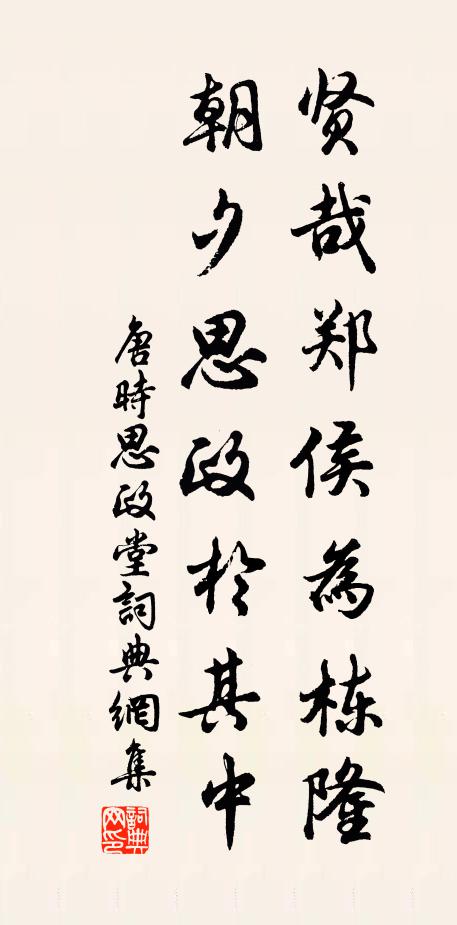 贤哉郑侯為栋隆
朝夕思政於其中
唐時思政堂詞典網集
詞典网印